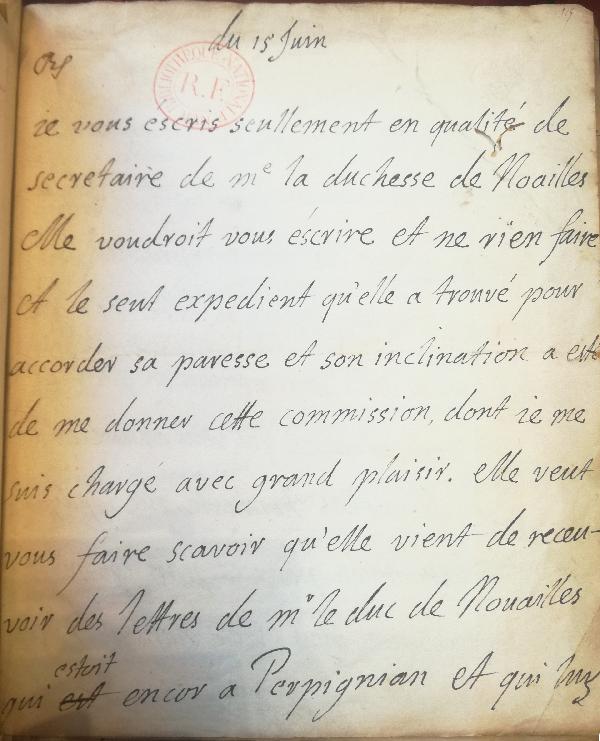 du 15 Juin
BIBLIOTHEQUE NATIONALE
R.F
ie vous escris seullement en qualité de
secretaire de mᵉ la duchesse de Noailles
elle voudroit vous éscrire et ne rien faire
et le seul expedient qu'elle a trouvé pour
accorder sa paresse et son inclination a esté
de me donner cette commission, dont ie me
suis chargé avec grand plaisir. elle veut
vous faire scavoir qu'elle vient de receu-
voir des lettres de mʳ le duc de Nouailles
estoit
qui est encor a Perpignian et qui luy